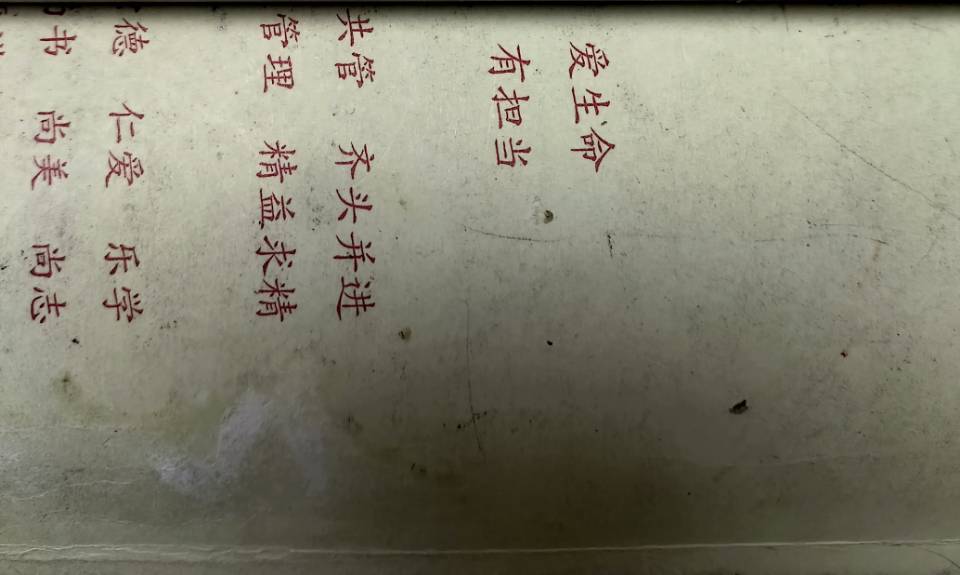 爱生命
有担当
共管 齐头并进
管理 精益求精
德 仁爱 乐学
书 尚美 尚志